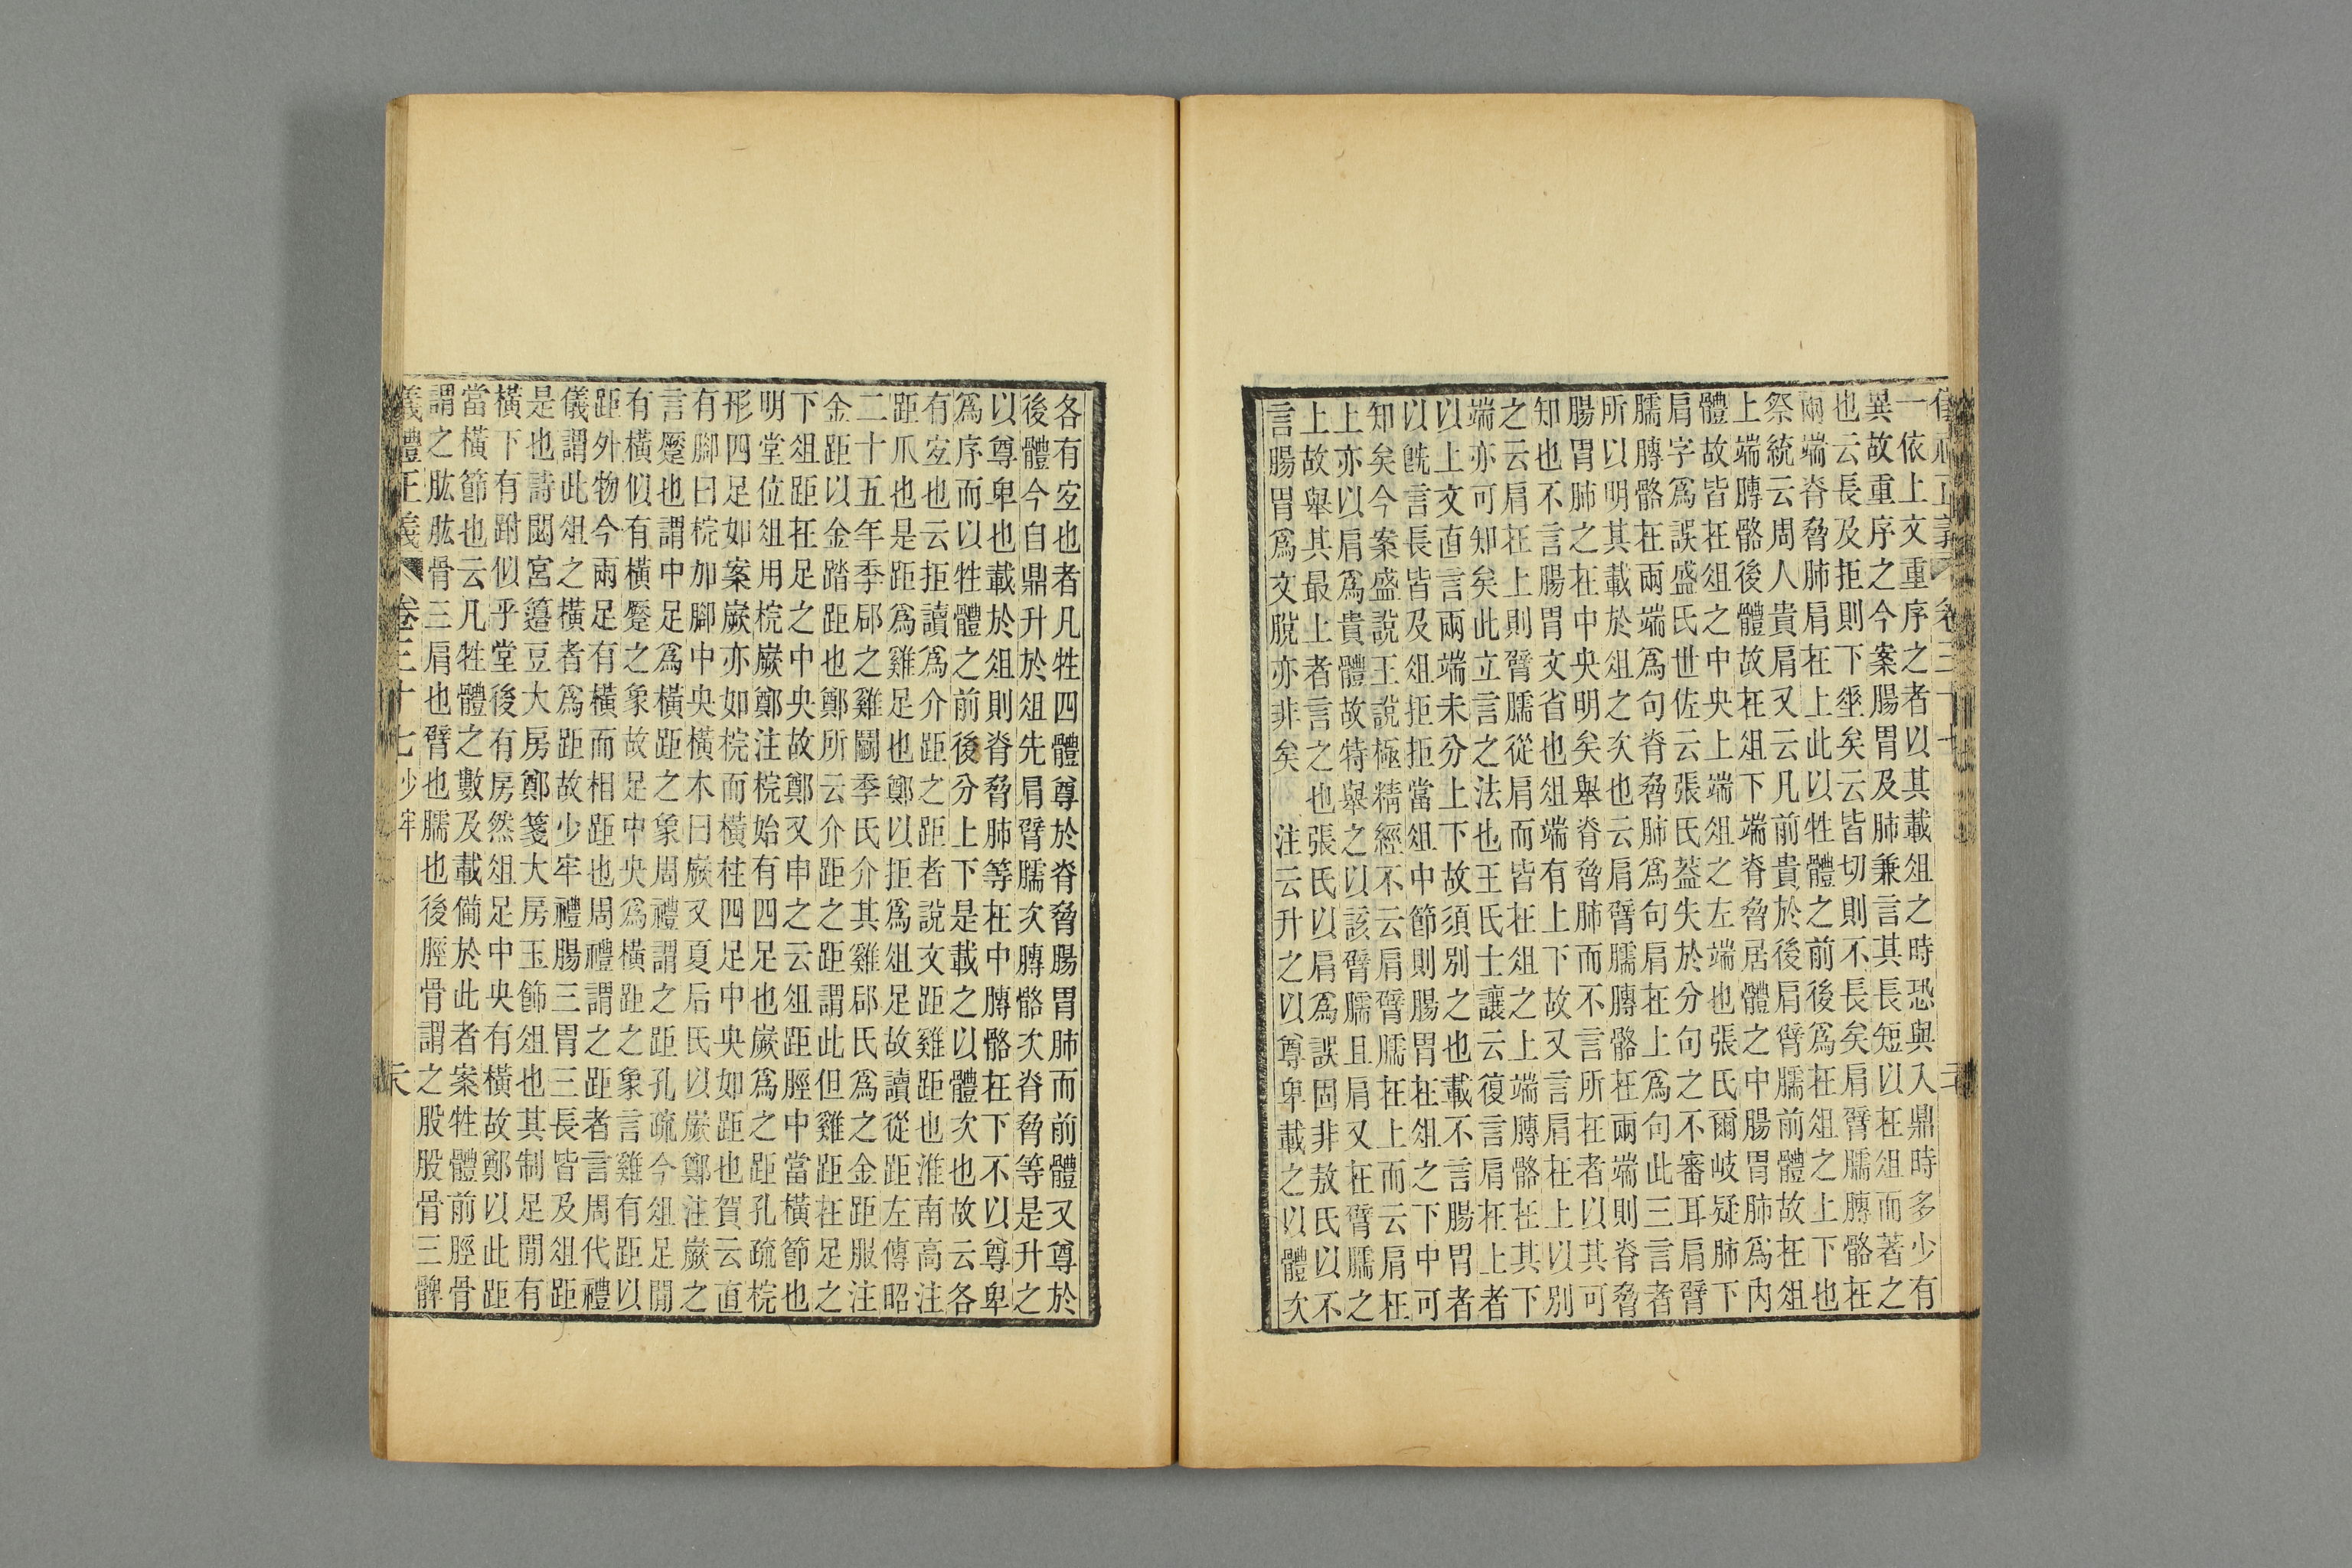 一依上文重序之者以其載俎之時恐與入鼎時多少有
異故重序之今案腸胃及肺兼言其長短以在俎而著之
也云長及拒則下垂矣云皆切則不長矣肩臂臑膊骼在
兩端脊脅肺肩在上此以牲體之前後爲在俎之上下也
祭統云周人貴肩又云凡前貴於後肩臂臑前體故在俎
上端膊骼後體故在俎下端脊脅居體之中腸胃肺爲內
體故皆在俎之中央上端俎之左端也張氏爾岐疑肺下
肩字爲誤盛氏世佐云張氏蓋失於分句之不審耳肩臂
臑膊骼在兩端爲句脊脅肺爲句肩在上爲句此三言者
所以明其載於俎之次也云肩臂臑膊骼在兩端則脊脅
腸胃肺之在中央明矣舉脊脅肺而不言所在者以其可
知也不言腸胃文省也俎端有上下故又言肩在上以別
之云肩在上則臂臑從肩而皆在俎之上端膊骼在其下
端亦可知矣此立言之法也王氏士讓云復言肩在上者
以上文直言兩端未分上下故須別之也載不言腸胃者
以旣言長皆及俎拒拒當俎中節則腸胃在俎之下中可
知矣今案盛說王說極精經不云肩臂臑在上而云肩在
上亦以肩爲貴體故特舉之以該臂臑且肩又在臂臑之
上故舉其最上者言之也張氏以肩爲誤固非敖氏以不
言腸胃爲文脫亦非矣 注云升之以尊卑載之以體次
各有宐也者凡牲四體尊於脊脅腸胃肺而前體又尊於
後體今自鼎升於俎先肩臂臑次膊骼次脊脅等是升之
以尊卑也載於俎則脊脅肺等在中膊骼在下不以尊卑
爲序而以牲體之前後分上下是載之以體次也故云各
有宐也云拒讀爲介距之距者說文距雞距也淮南高注
距爪也是距爲雞足也鄭以拒爲俎足故讀從距左傳昭
二十五年季郈之雞鬭季氏介其雞郈氏爲之金距服注
金距以金踏距也鄭所云介距之距謂此但雞距在足之
下俎距在足之中央故鄭又申之云俎距脛中當橫節也
明堂位俎用梡嶡鄭注梡始有四足也嶡爲之距孔疏梡
形四足如案嶡亦如梡而橫柱四足中央如距也賀云直
有腳曰梡加腳中央橫木曰嶡又夏后氏以嶡鄭注嶡之
言蹷也謂中足爲橫距之象周禮謂之距孔疏今俎足閒
有橫似有橫蹷之象故足中央爲橫距之象言雞有距以
距外物今兩足有橫而相距也周禮謂之距者言周代禮
儀謂此俎之橫者爲距故少牢禮腸三胃三長皆及俎距
是也詩閟宮籩豆大房鄭箋大房玉飾俎也其制足閒有
橫下有跗似乎堂後有房然俎足中央有橫故鄭以此距
當橫節也云凡牲體之數及載備於此者案牲體前脛骨
謂之肱肱骨三肩也臂也臑也後脛骨謂之股股骨三髀
儀禮正義 卷三十七少牢